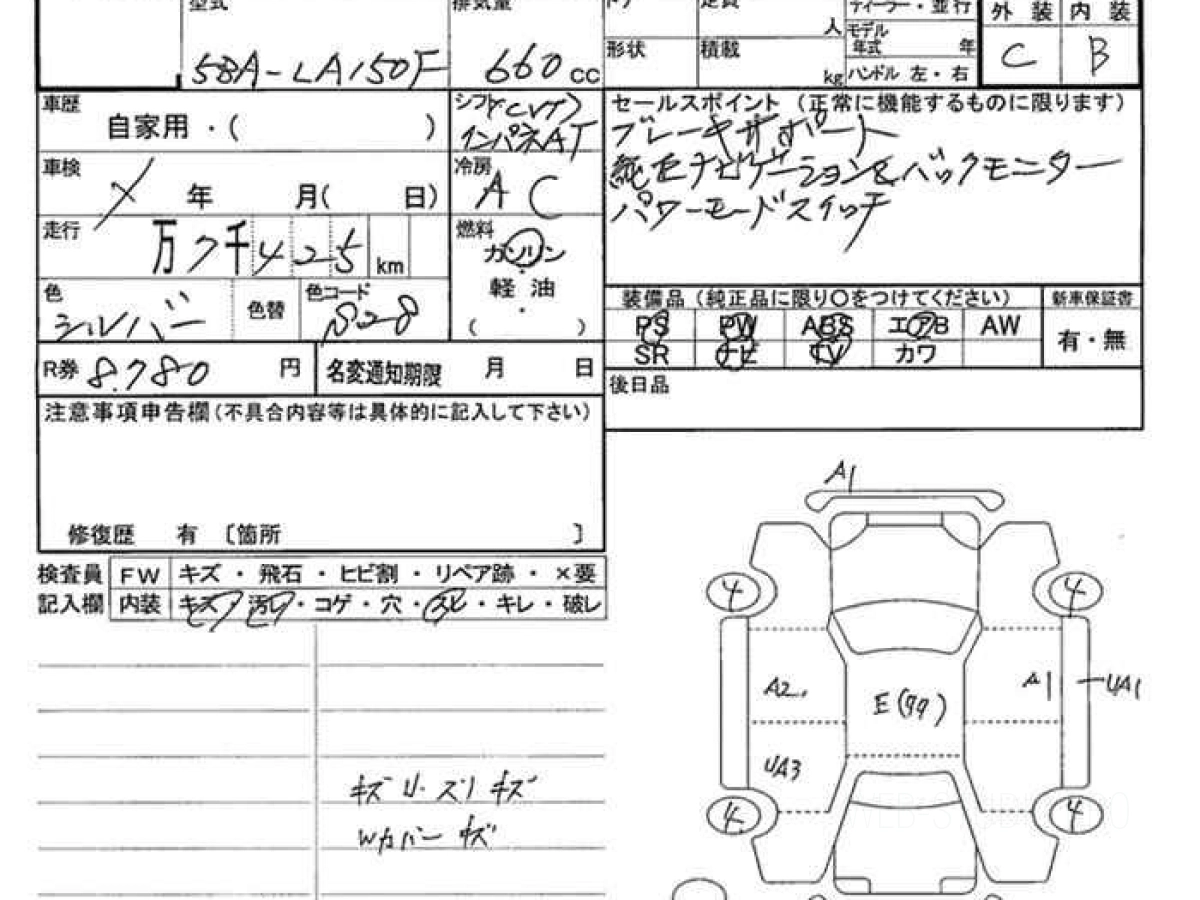 型式 排気量
定員 人
ディーラー・並行
モデル年式 年
ハンドル 左・右
外装 内装
C B
5BA-LA150F 660 cc
形状 積載 kg
車歴 自家用・( )
シフト(CVT)
インパネAT
セールスポイント (正常に機能するものに限ります)
ブレーキサポート
純正ナビゲーション&バックモニター
パワーモードスイッチ
車検 年 月( 日)
冷房 AC
走行 万7千425km
燃料
ガソリン
軽油
( )
色 シルバー 色替 色コード S28
装備品(純正品に限り○をつけてください) 新車保証書
PS PW ABS エアB AW
SR ナビ TV カワ
有・無
R券 8.780 円 名変通知期限 月 日
後日品
注意事項申告欄(不具合内容等は具体的に記入して下さい)
修復歴 有 〔箇所 〕
検査員 FW キズ・飛石・ヒビ割・リペア跡・×要
記入欄 内装 キズ・汚レ・コゲ・穴・スレ・キレ・破レ
A1
4 4
A2. E(99) A1 UA1
UA3
4 4
キズ U.スリ キズ
Wカバー キズ